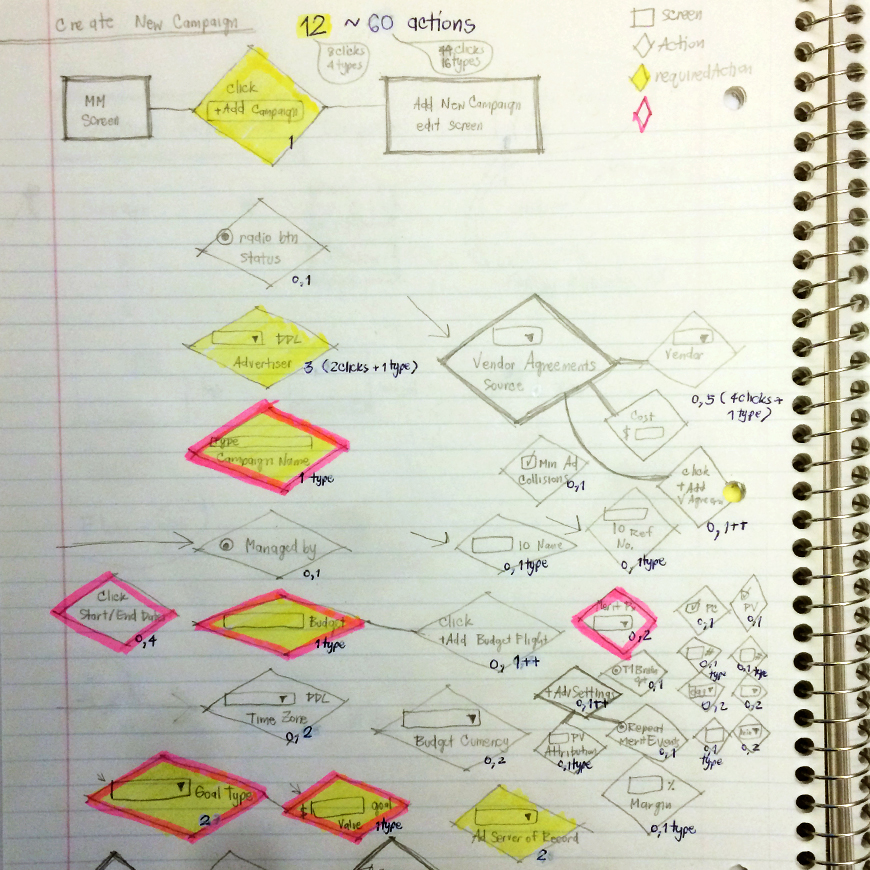 Create New Campaign
12 ~ 60 actions
8 clicks
4 types
44 clicks
16 types
Screen
Action
required Action
MM
Screen
click
+Add Campaign
1
Add New Campaign
edit screen
radio btn
status
0,1
DDL
Advertiser
3 (2clicks + 1type)
Vendor Agreements
Source
Vendor
0,5 (4clicks +
1 type)
Cost
$
type
Campaign Name
1 type
Min Ad
Collisions
0,1
click
+Add
0,1++
Managed by
0,1
IO Name
0,1type
IO Ref
No.
0,1type
Click
Start/End Dates
0,4
Budget
1type
Click
+Add Budget Flight
0, 1++
0,2
PC
0,1
PV
0,1
DDL
Time Zone
0,2
Budget Currency
0,2
+AdvSettings
0,1++
0,1
0,1
type
0,1
type
0,2
0,2
PV
Attribution
0,1type
Repeat
Merit Events
0,1
0,1
type
0,2
Goal Type
2
$
goal
Value
1type
Ad Server of Record
2
%
Margin
0,1type